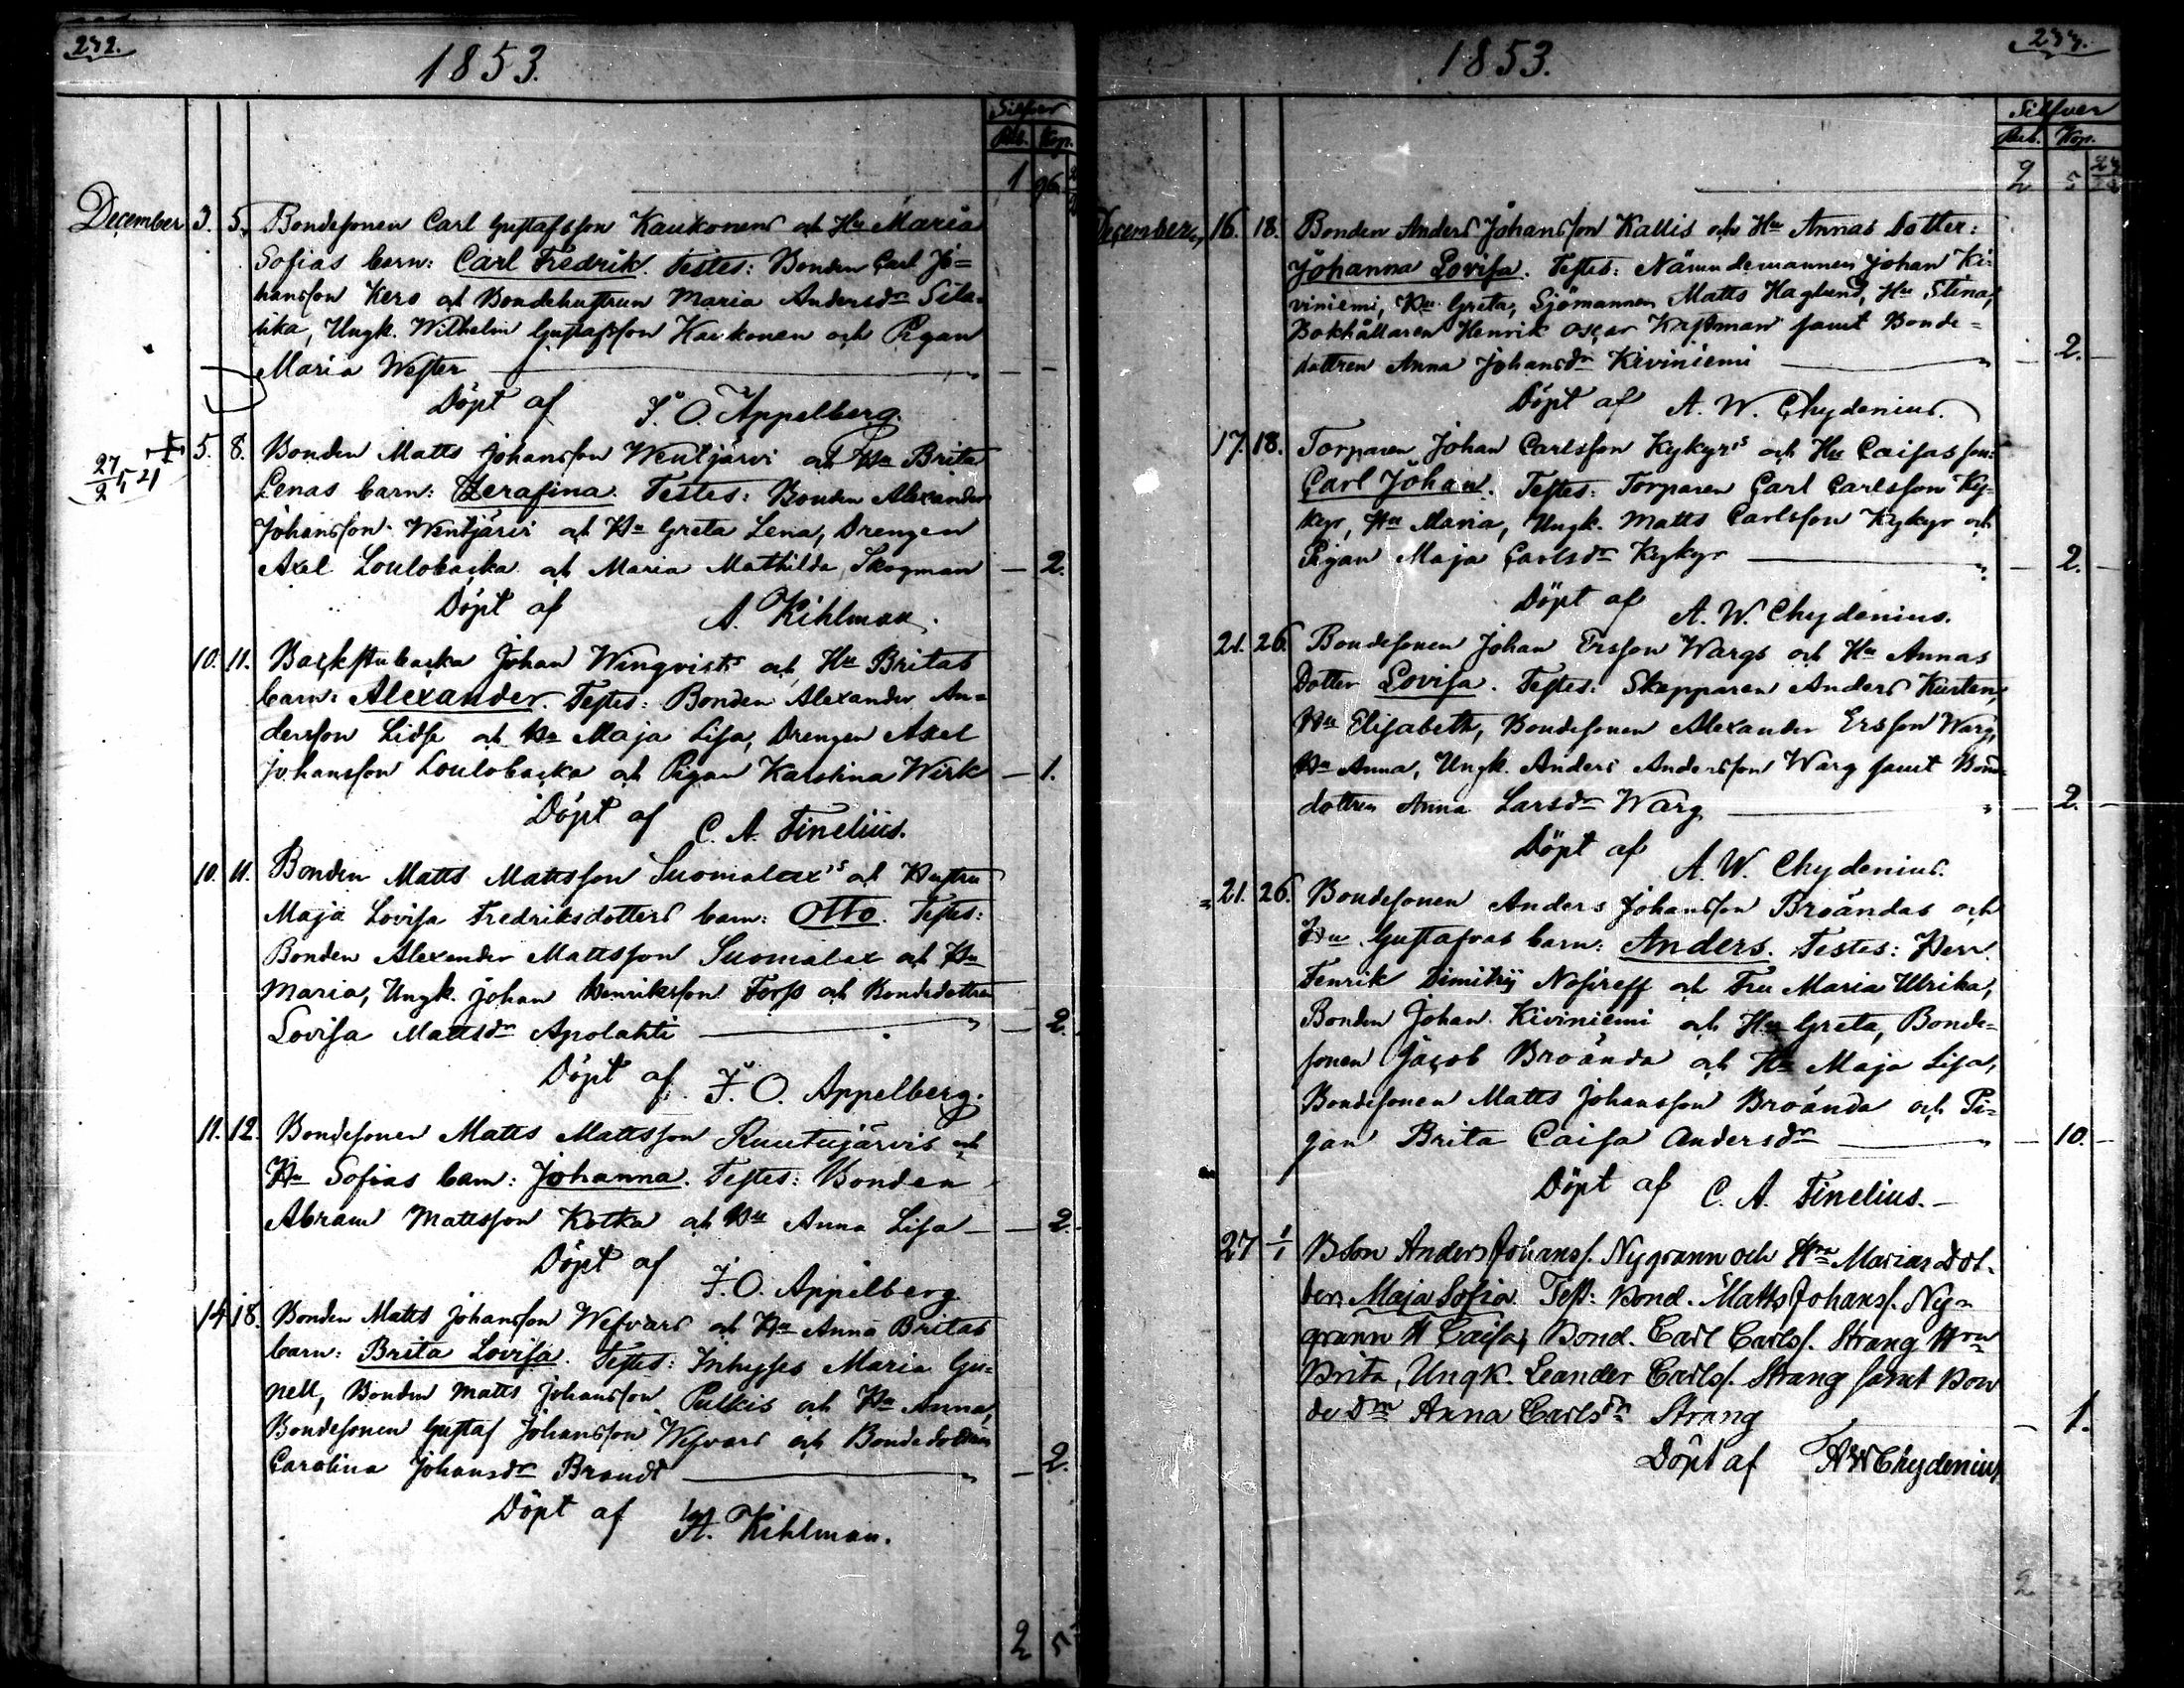 232.
1853.
Silfver
Rub. Kop.
1 96
December 3. 5. Bondesonen Carl Gustafsson Kaukonens och Hu Maria
Sofias barn: Carl Fredrik. Testes: Bonden Carl Jo=
hansson Kero och Bondehustrun Maria Andersdr Sila-
, Ungk. Wilhelm Gustafsson Kaukonen och Pigan
Maria Wester — — —
Döpt af F. O. Appelberg.
5. 8. Bonden Matts Johansson Wentjärvi och Hu Brita
Lenas barn: Serafina. Testes: Bonden Alexander
Johansson Wentjärvi och Hu Greta Lena, Drengen
Axel Loulobacka och Maria Mathilda Skogman — 2.
Döpt af A. Kihlman.
10. 11. Backstubacka Johan Wingvists och Hu Britas
barn: Alexander. Testes: Bonden Alexander An=
dersson Lidse och Hu Maja Lisa, Drengen Axel
Johansson Loulobacka och Pigan Karolina Wirk — 1.
Döpt af C. A. Finelius.
10. 11. Bonden Matts Mattsson Suomalax's och Hustru
Maja Lovisa Fredriksdotters barn: Otto. Testes:
Bonden Alexander Mattsson Suomalax och Hu
Maria, Ungk. Johan Henriksson Forss och Bondedottren
Lovisa Mattsdr Apolahti — 2.
Döpt af F. O. Appelberg.
11. 12. Bondesonen Matts Mattsson Ruutujärvis och
Hu Sofias barn: Johanna. Testes: Bonden
Abram Mattsson Kotka och Hu Anna Lisa — 2.
Döpt af F. O. Appelberg
14 18. Bonden Matts Johansson Wefvars och Hu Anna Britas
barn: Brita Lovisa. Testes: Inhyses Maria Gu=
nell, Bonden Matts Johansson Pulkis och Hu Anna,
Bondesonen Gustaf Johansson Wefvars och Bondedottren
Carolina Johansdr Brandt — 2.
Döpt af A. Kihlman.
2 5
233.
1853.
Silfver
Rub. Kop.
2 5
December 16. 18. Bonden Anders Johansson Kallis och Hu Annas Dotter:
Johanna Lovisa. Testes: Nämndemannen Johan Ki=
viniemi, Hu Greta, Sjömannen Matts Haglund, Hu Stina,
Bokhållaren Henrik Oscar Kastman samt Bonde=
dottren Anna Johansdr Kiviniemi — 2.
Döpt af A. W. Chydenius.
17. 18. Torparen Johan Carlsson Kykyr's och Hu Caisas son:
Carl Johan. Testes: Torparen Carl Carlsson Ky-
kyr, Hu Maria, Ungk. Matts Carlsson Kykyr och
Pigan Maja Carlsdr Kykyr — 2.
Döpt af A. W. Chydenius.
21. 26. Bondesonen Johan Ersson Wargs och Hu Annas
Dotter Lovisa. Testes: Skepparen Anders Kurten,
Hu Elisabeth, Bondesonen Alexander Ersson Warg,
Hu Anna, Ungk. Anders Andersson Warg samt Bonde-
dottren Anna Larsdr Warg — 2.
Döpt af A. W. Chydenius.
21. 26. Bondesonen Anders Johansson Broändas och
Hu Gustafvas barn: Anders. Testes: Herr
Fenrik Dimitrij Nosireff och Fru Maria Ulrika,
Bonden Johan Kiviniemi och Hu Greta, Bonde=
sonen Jacob Broända och Hu Maja Lisa,
Bondesonen Matts Johansson Broända och Pi=
gan Brita Caisa Andersdr — 10.
Döpt af C. A. Finelius.
27 1/1 BSon Anders Johanss. Nygrann och Hru Marias Dot-
ter, Maja Sofia. Test: Bond. Matts Johanss. Ny=
grann H Caisa, Bond. Carl Carlss. Strang Hru
Brita, Ungk. Leander Carlss. Strang samt Bon
de Dru Anna Carlsdr Strang — 1.
Döpt af AWChydenius
2